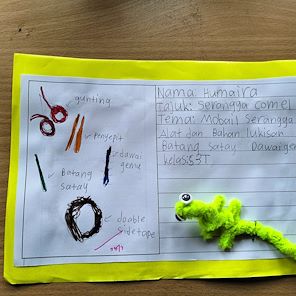 gunting
Penyepit
dawai
genie
Batang
satay
double
sidetape
Nama: Humaira
Tajuk: Serangga comel
Tema: Mobail Serangga
Alat dan Bahan lukisan
Batang Satay Dawai gen
kelas:3T